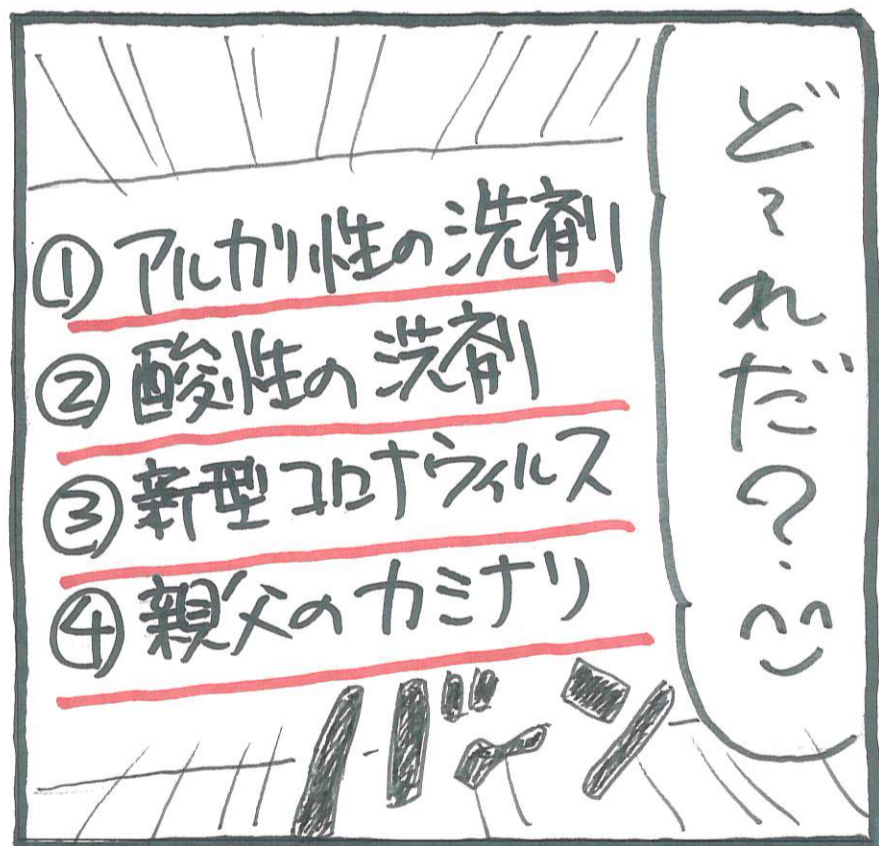 ど〜れだ?^^
①アルカリ性の洗剤
②酸性の洗剤
③新型コロナウィルス
④親父のカミナリ
バーン